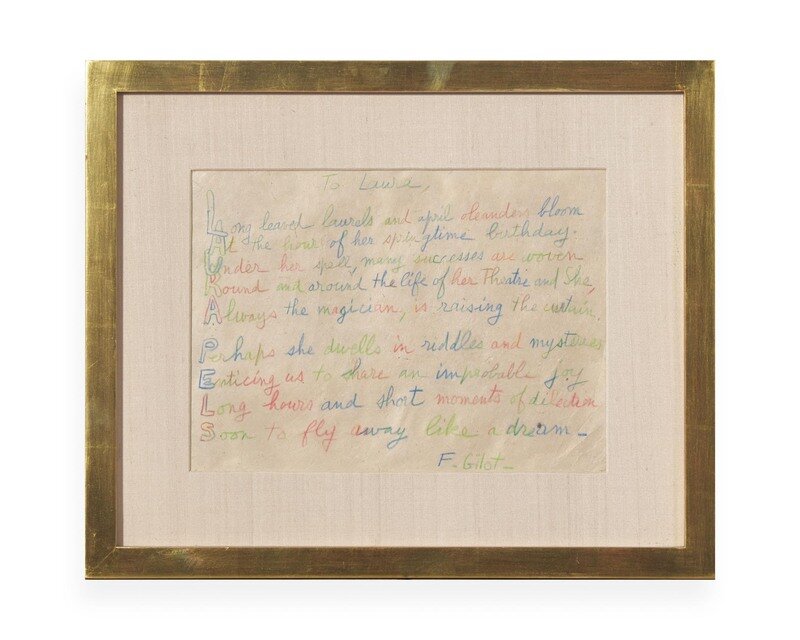 To Laura,
Long leaved laurels and april oleanders bloom
At the hour of her springtime birthday.
Under her spell, many successes are woven
Round and around the life of her Theatre and She,
Always the magician, is raising the curtain.
Perhaps she dwells in riddles and mysteries
Enticing us to share an improbable joy
Long hours and short moments of dilection
Soon to fly away like a dream —
F. Gilot —